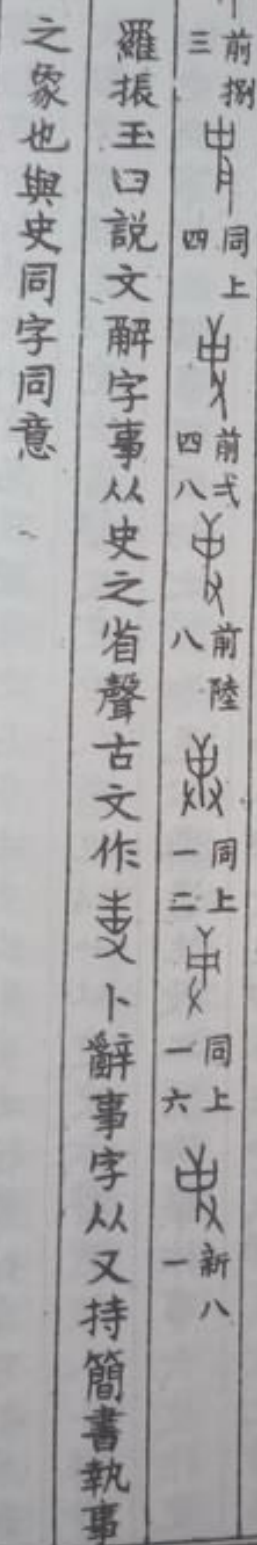 前捌三 同上四 前弍四八 前陸八 同上一二 同上一六 新八一
羅振玉曰説文解字事从史之省聲古文作𠭏卜辭事字从又持簡書執事
之象也與史同字同意